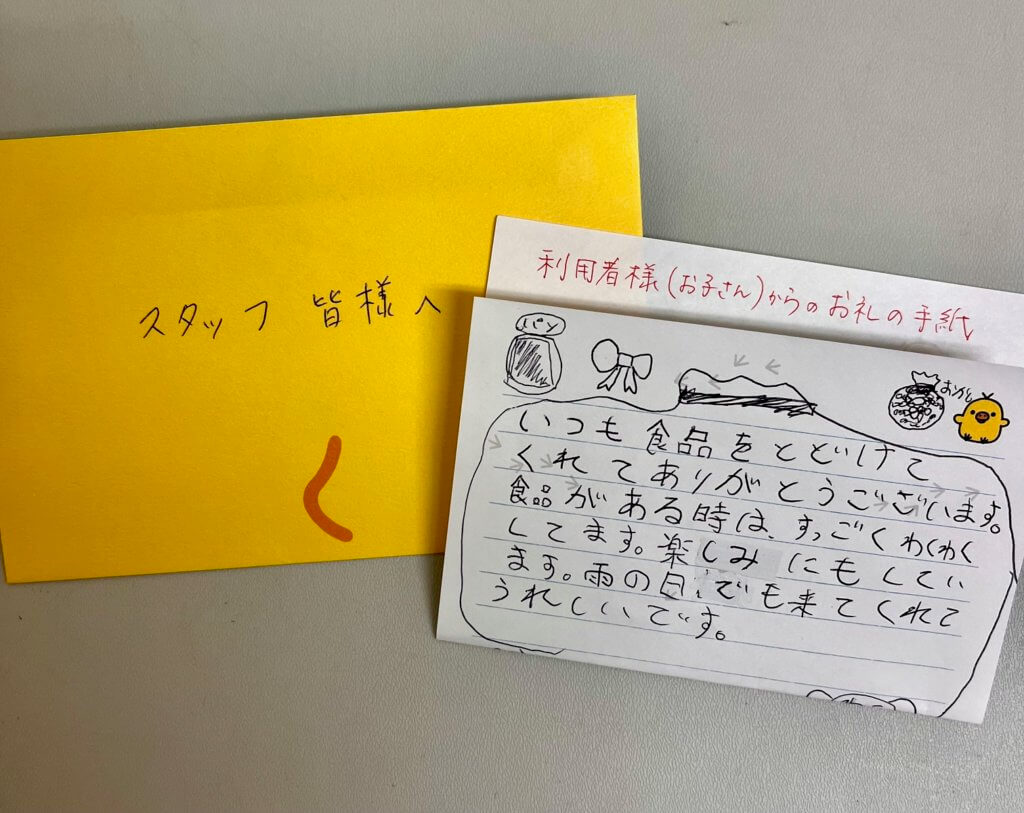 スタッフ 皆様へ
利用者様(お子さん)からのお礼の手紙
パン
おかし
いつも食品をとどけて
くれてありがとうございます。
食品がある時は、すっごくわくわく
してます。楽しみにもしてい
ます。雨の日でも来てくれて
うれしいです。